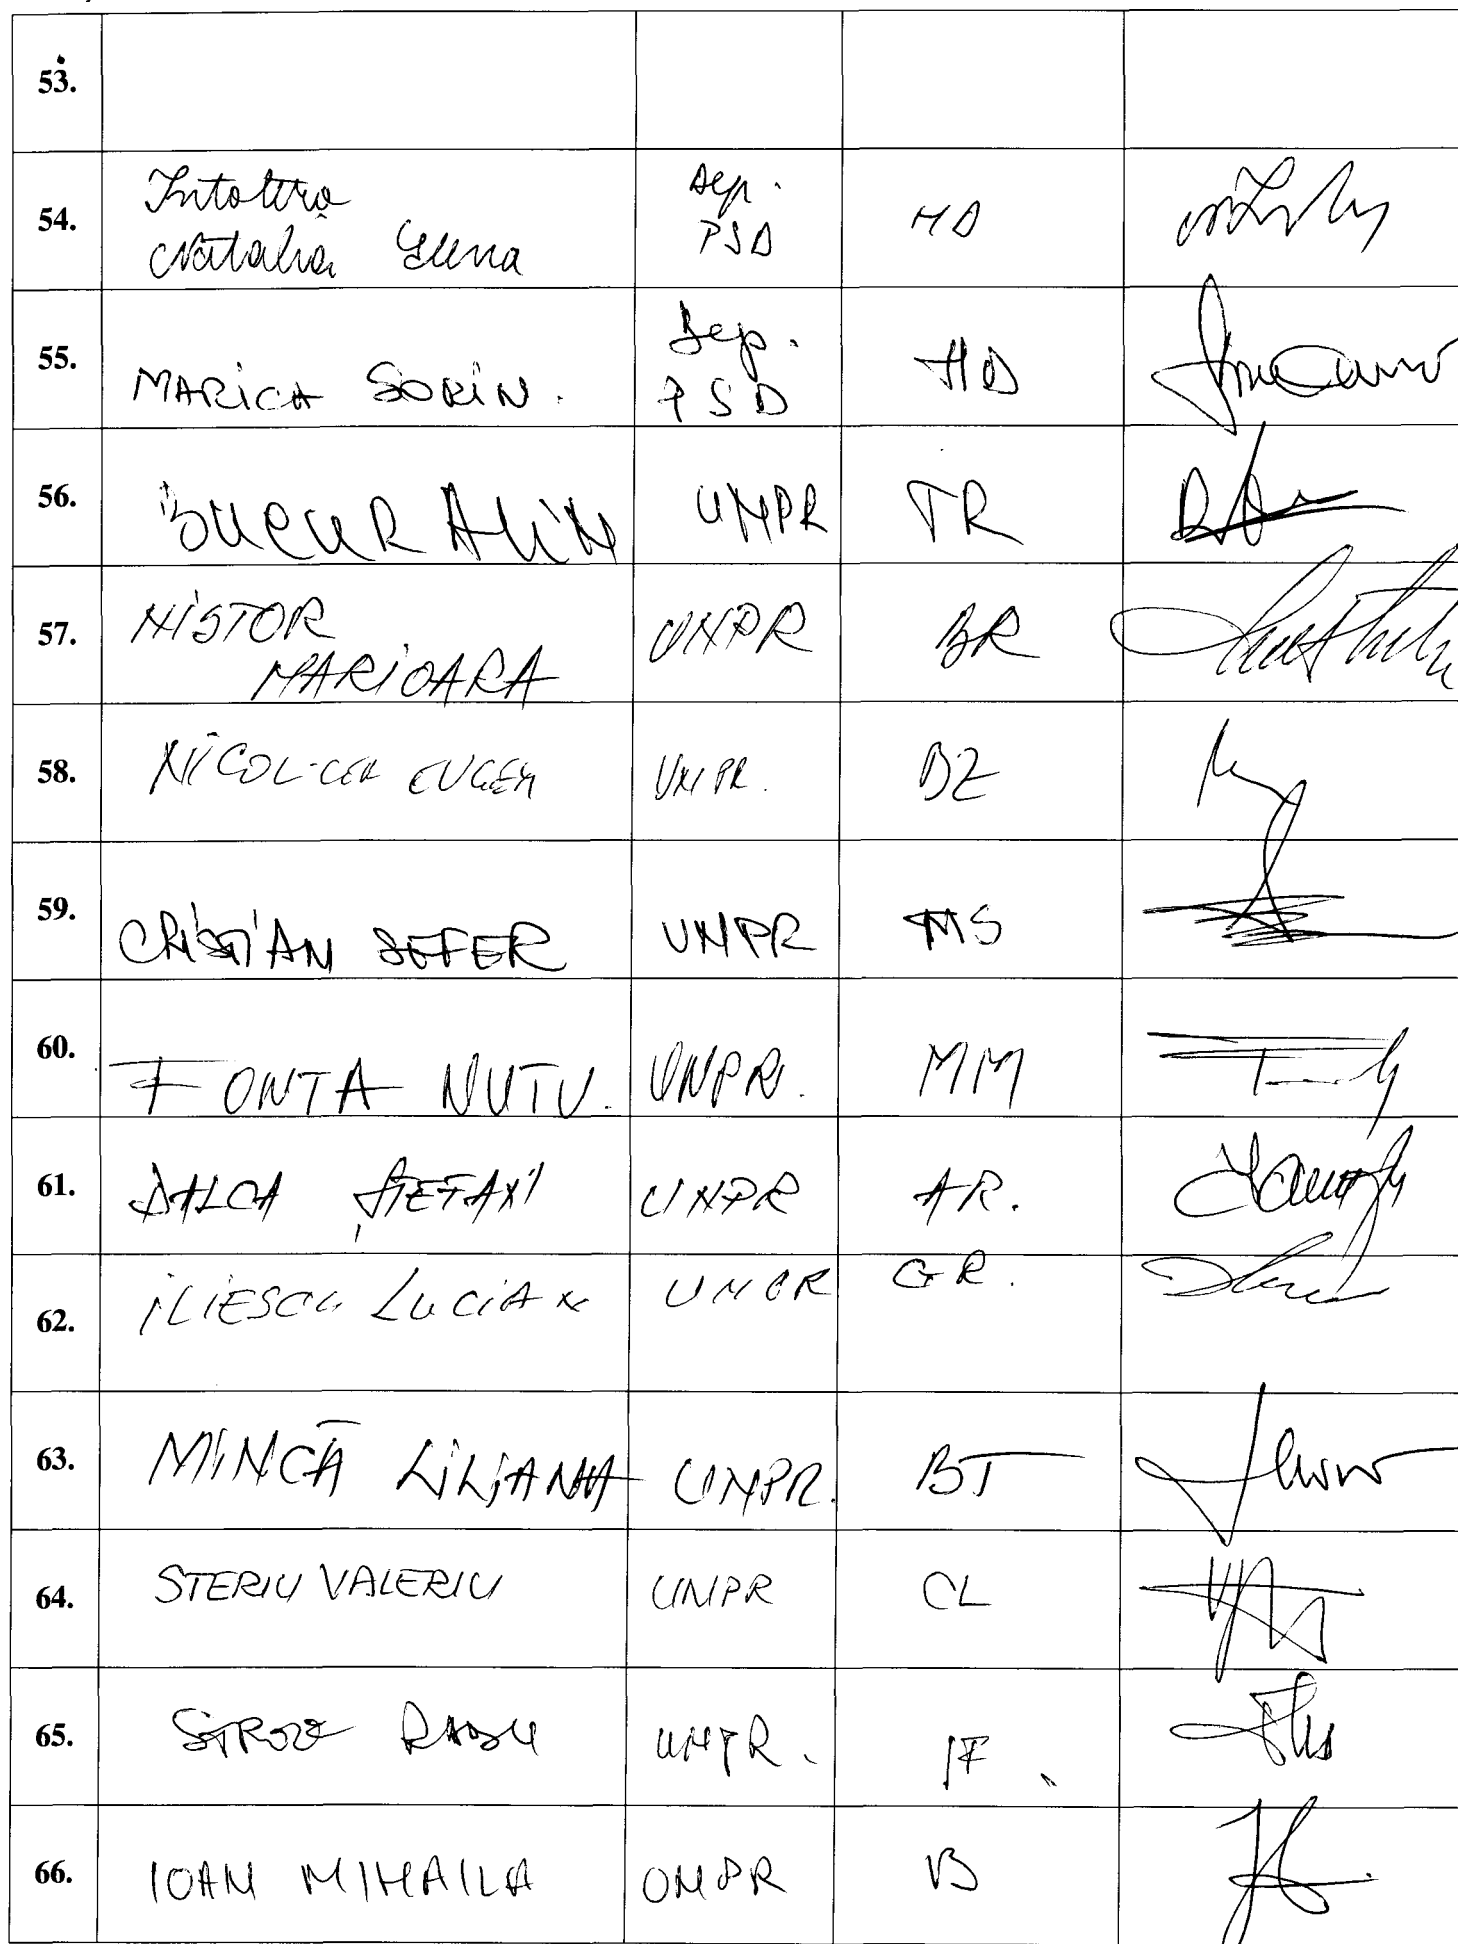 53.
54.
Intotero
Natalia Elena
Dep.
PSD
HD
55.
MARICA SORIN.
Dep.
PSD
HD
56.
BUCUR ALIN
UNPR
TR
57.
NISTOR
MARIOARA
UNPR
BR
58.
NICOLICEA EUGEN
UNPR.
BZ
59.
CRISTIAN SEFER
UNPR
MS
60.
FONTA NUTU.
UNPR.
MM
61.
DALCA ȘTEFAN
UNPR
AR.
62.
ILIESCU LUCIAN
UNPR
GR.
63.
MINCĂ LILIANA
UNPR.
BT
64.
STERIU VALERIU
UNPR
CL
65.
STROE RADU
UNPR.
IF
66.
IOAN MIHAILA
UNPR
B